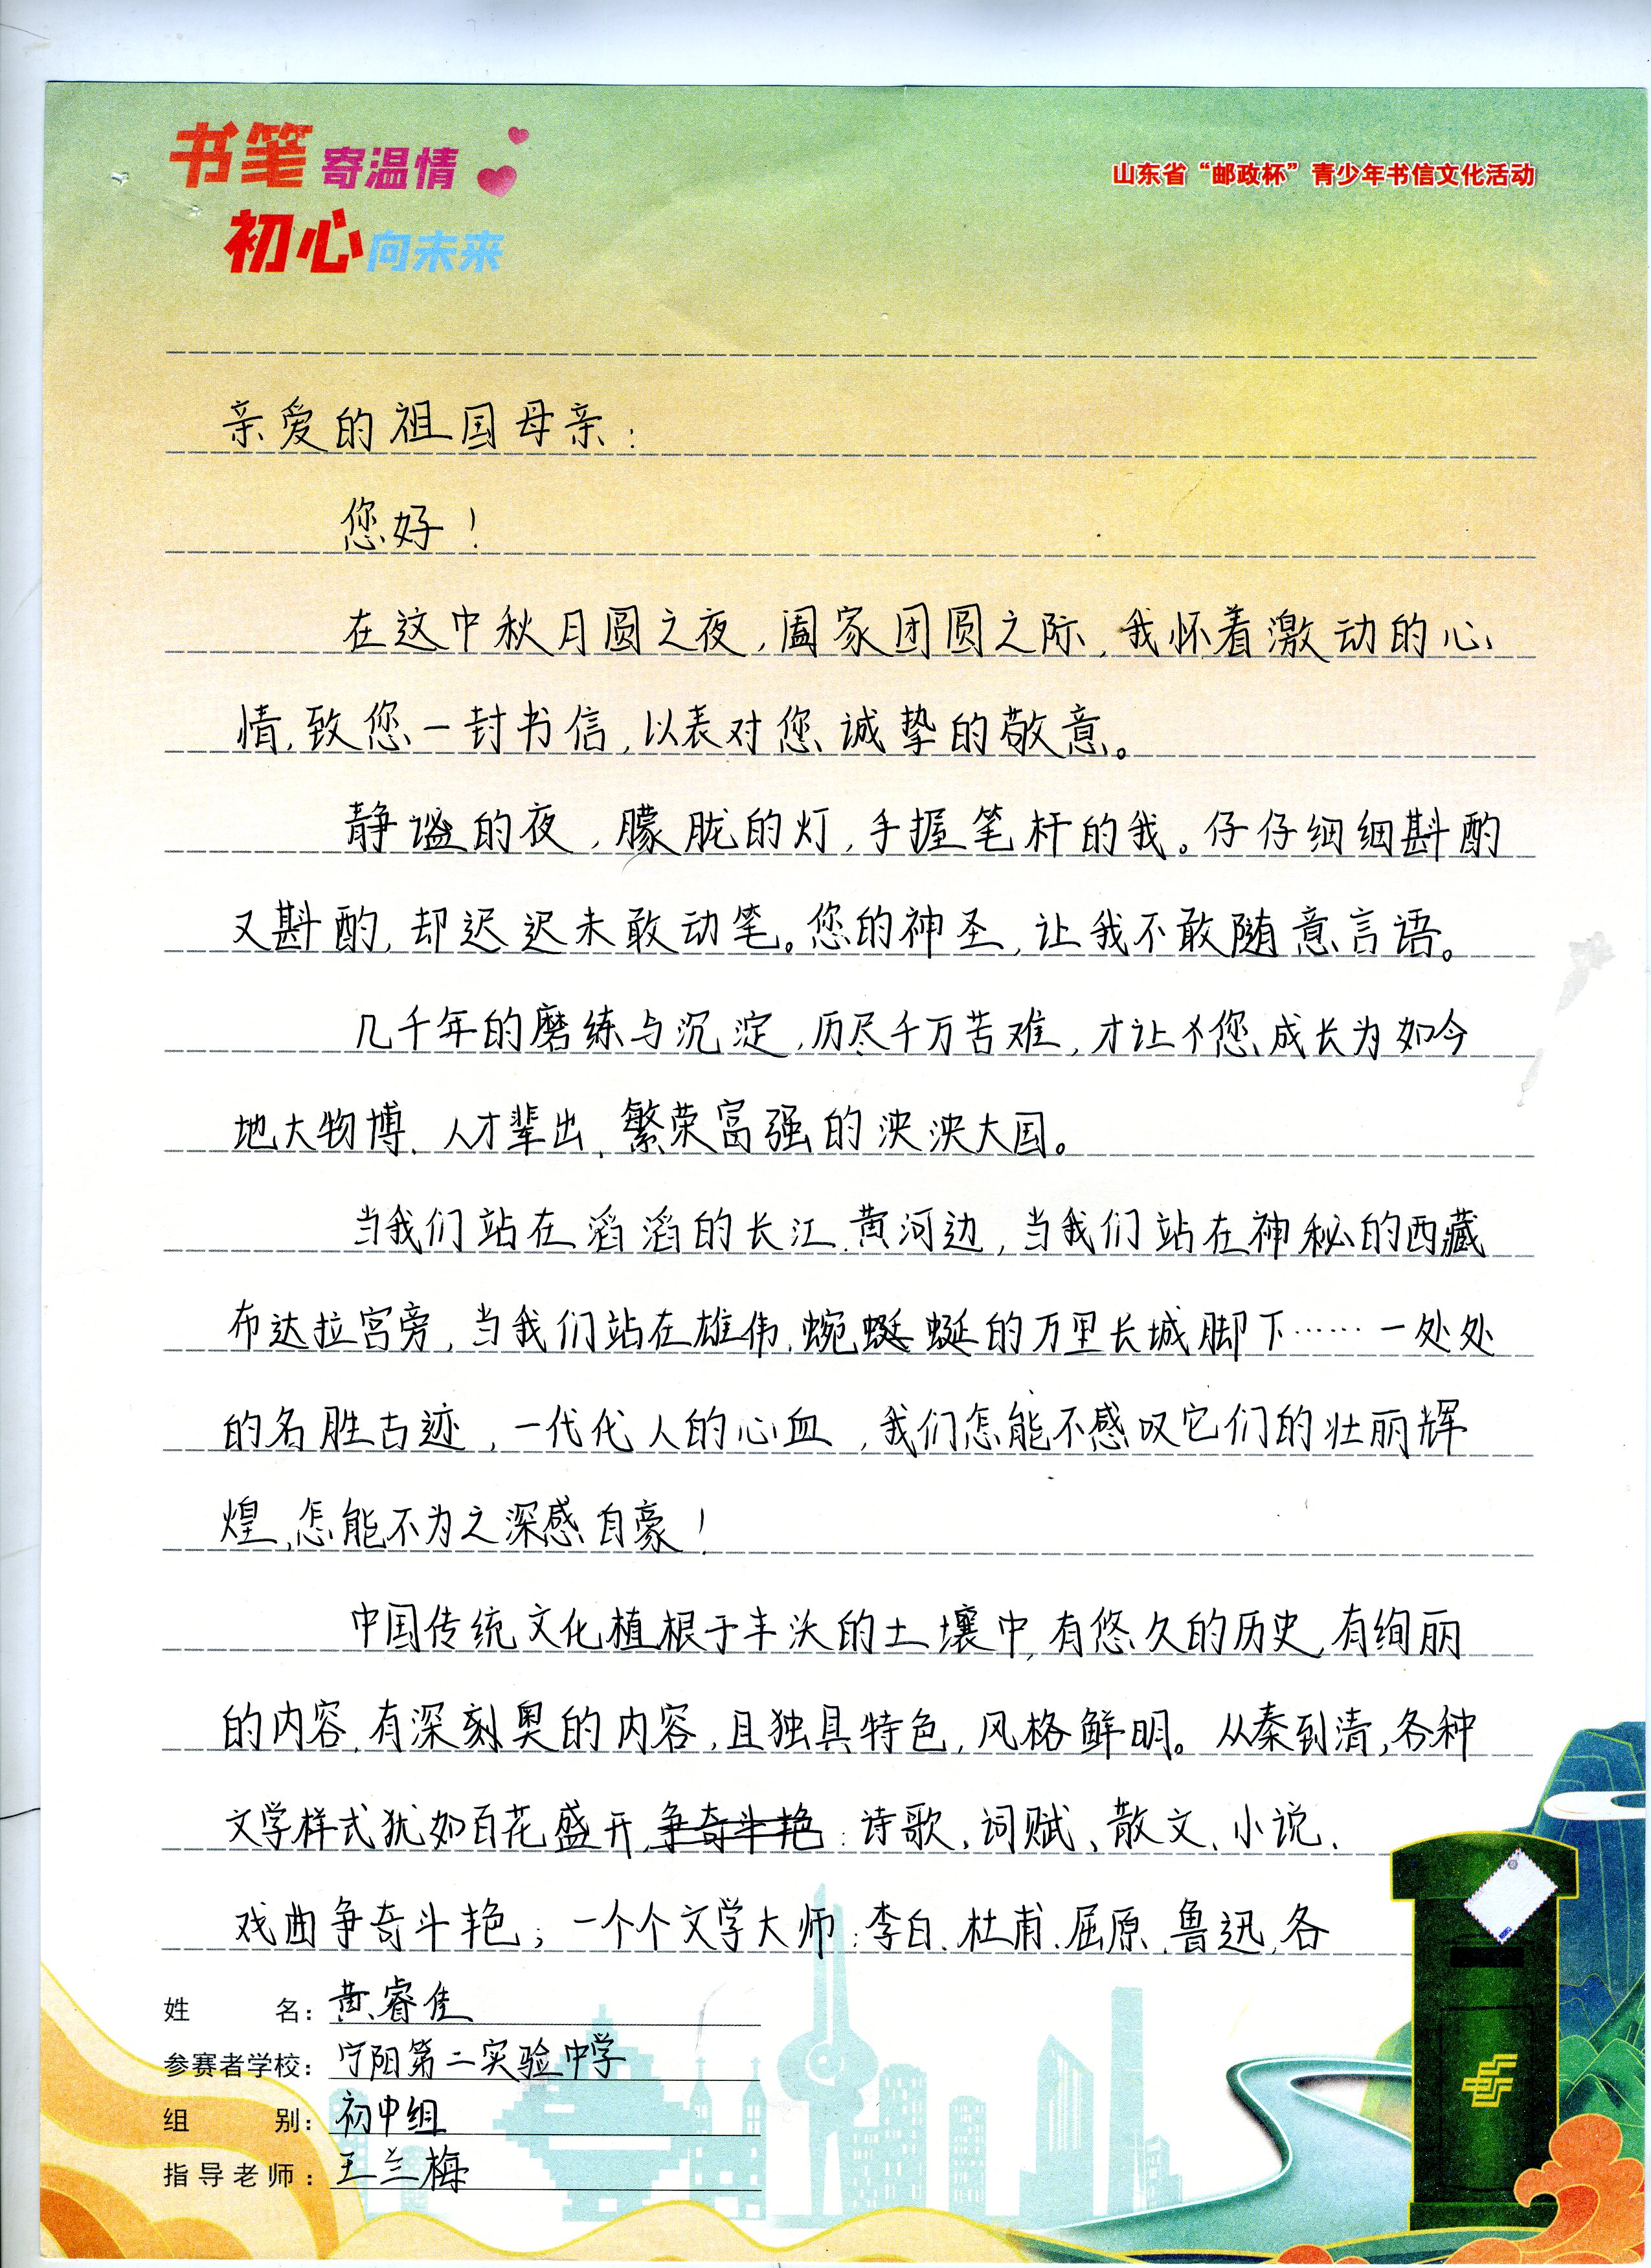 书笔寄温情
初心向未来
山东省“邮政杯”青少年书信文化活动
亲爱的祖国母亲：
您好！
在这中秋月圆之夜，阖家团圆之际，我怀着激动的心
情，致您一封书信，以表对您诚挚的敬意。
静谧的夜，朦胧的灯，手握笔杆的我。仔仔细细斟酌
又斟酌，却迟迟未敢动笔。您的神圣，让我不敢随意言语。
几千年的磨练与沉淀，历尽千万苦难，才让您成长为如今
地大物博、人才辈出、繁荣富强的泱泱大国。
当我们站在滔滔的长江、黄河边，当我们站在神秘的西藏
布达拉宫旁，当我们站在雄伟、蜿蜒蜒的万里长城脚下……一处处
的名胜古迹，一代代人的心血，我们怎能不感叹它们的壮丽辉
煌，怎能不为之深感自豪！
中国传统文化植根于丰沃的土壤中，有悠久的历史，有绚丽
的内容，有深刻奥的内容，且独具特色，风格鲜明。从秦到清，各种
文学样式犹如百花盛开，争奇斗艳：诗歌、词赋、散文、小说、
戏曲争奇斗艳；一个个文学大师：李白、杜甫、屈原、鲁迅，各
姓名：黄睿佳
参赛者学校：宁阳第二实验中学
组别：初中组
指导老师：王兰梅